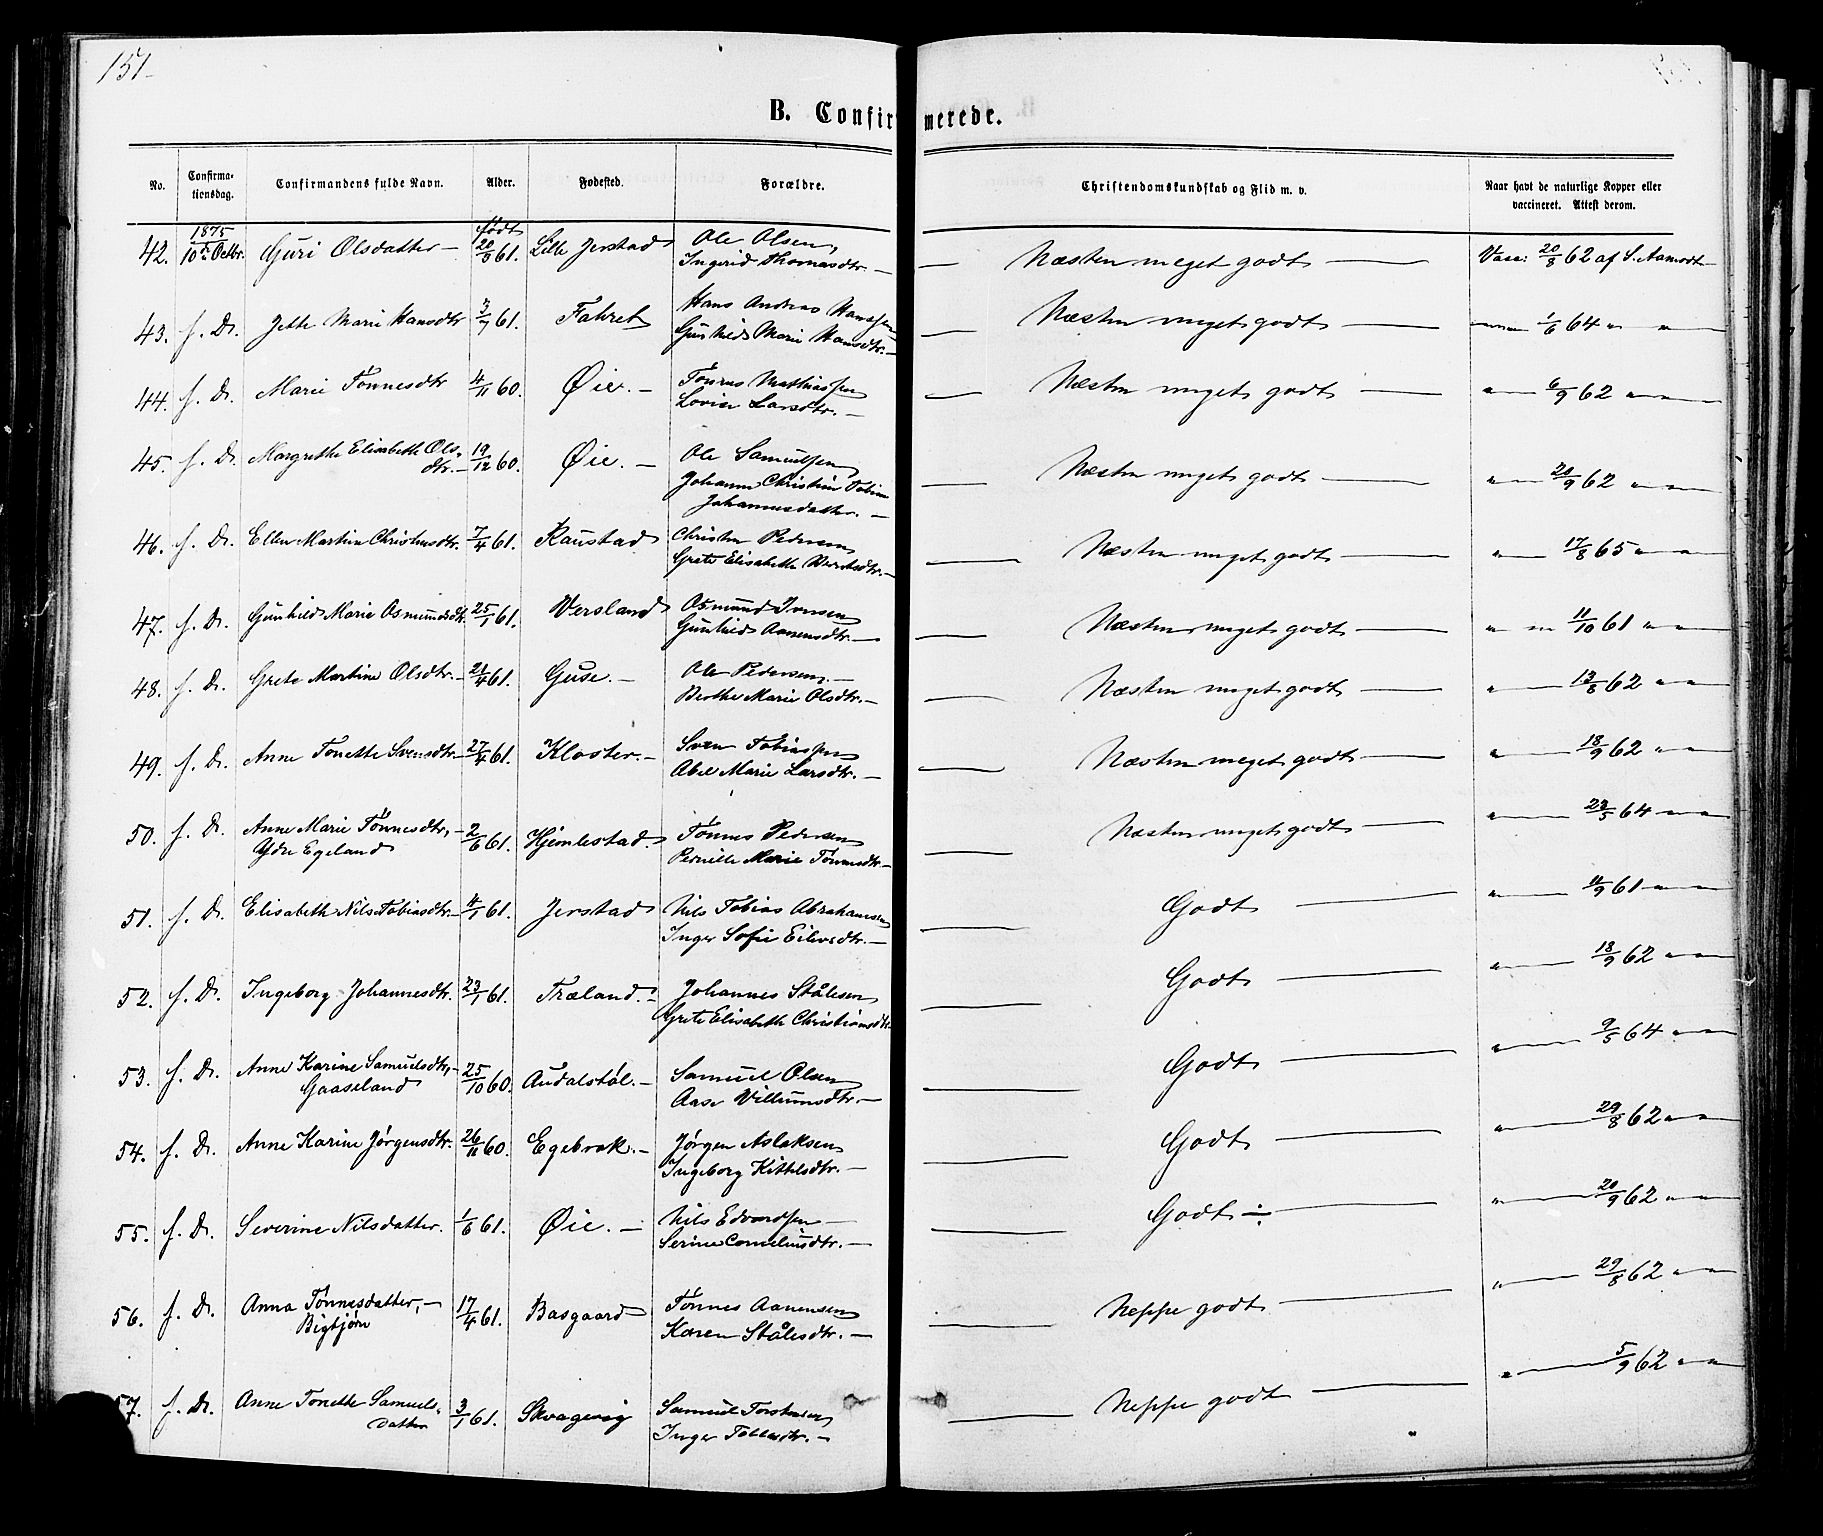 151.
B. Confirmerede.
No. Confirma-tionsdag. Confirmandens fulde Navn. Alder. Fødested. Forældre. Christendomskundskab og Flid m. v. Naar havt de naturlige Kopper eller vaccineret. Attest derom.
1875 født
42. 10de Octbr. Guri Olsdatter – 20/9 61. Lille Jerstad Ole Olsen, — Næsten meget godt — Vacc: 20/8 62 af S. Aamodt
Ingerid Thomasdtr. –
43. f. D. Jette Marie Hansdtr 3/7 61. Fahret Hans Andreas Hanssen — Næsten meget godt — 1/6 64 " — "
Gunhild Marie Hansdtr. –
44. f. D. Marie Tønnesdtr 4/11 60. Øie. – Tønnes Mathiassen — Næsten meget godt — " — 6/9 62 " — " —
Lovise Larsdtr. –
45. f. D. Margrethe Elisabeth Ols- 19/12 60. Øie. – Ole Samuelsen — Næsten meget godt — " — 20/9 62 " — " —
dtr. – Johanne Christine Tobine
Johannesdatter. –
46. f. D. Ellen Martine Christensdtr. 7/4 61. Raustad Christen Pedersen — Næsten meget godt — " — 17/8 65 " — " —
Grete Elisabeth Berntsdtr. –
47. f. D. Gunhild Marie Osmundsdtr. 25/1 61. Versland Osmund Iversen — Næsten meget godt — " — " 11/10 61 " — " —
Gunhild Aanensdtr. –
48. f. D. Grete Martine Olsdtr. – 21/4 61. Guse. – Ole Pedersen. – — Næsten meget godt — " — 13/8 62 " — "
Berthe Marie Olsdtr. –
49. f. D. Anne Tonette Svensdtr – 27/4 61. Kloster. – Sven Tobiassen — Næsten meget godt — " — 18/9 62 " — "
Abel Marie Larsdtr. –
50. f. D. Anne Marie Tønnesdtr, – 2/6 61. Hjemlestad. Tønnes Pedersen — Næsten meget godt — " — 23/5 64 " — "
Ydre Egeland Pernille Marie Tønnesdtr. –
51. f. D. Elisabeth Nils Tobiasdtr. – 4/1 61. Jerstad Nils Tobias Abrahamsen — Godt — " — 11/9 61 " — "
Inger Sofie Eilevsdtr. –
52. f. D. Ingeborg Johannesdtr. 23/1 61. Træland. – Johannes Stålesen — Godt — " — 18/9 62 " — "
Grete Elisabeth Christiansdtr.
53. f. D. Anne Karine Samuelsdtr, – 25/10 60. Audalstøl. – Samuel Olsen — Godt — " — 9/5 64 " — "
Gaaseland Aase Villumsdtr. –
54. f. D. Anne Karine Jørgensdtr. 26/11 60. Egebrok. – Jørgen Aslaksen — Godt — " — 29/8 62 " — "
Ingeborg Kittelsdtr. –
55. f. D. Severine Nilsdatter. 1/6 61. Øie. – Nils Edvardsen – — Godt ÷ — " — 20/9 62 " — "
Serine Corneliusdtr. –
56. f. D. Anna Tønnesdatter, – 17/4 61. Basgaard Tønnes Aanensen — Neppe godt — " — 29/8 62 " — "
Bigbjørn Karen Stålesdtr. –
57. f. D. Anne Tonette Samuels- 3/1 61. Skvagevig Samuel Torstensen — Neppe godt — " — 5/9 62 " — "
datter Inger Tollesdtr. –